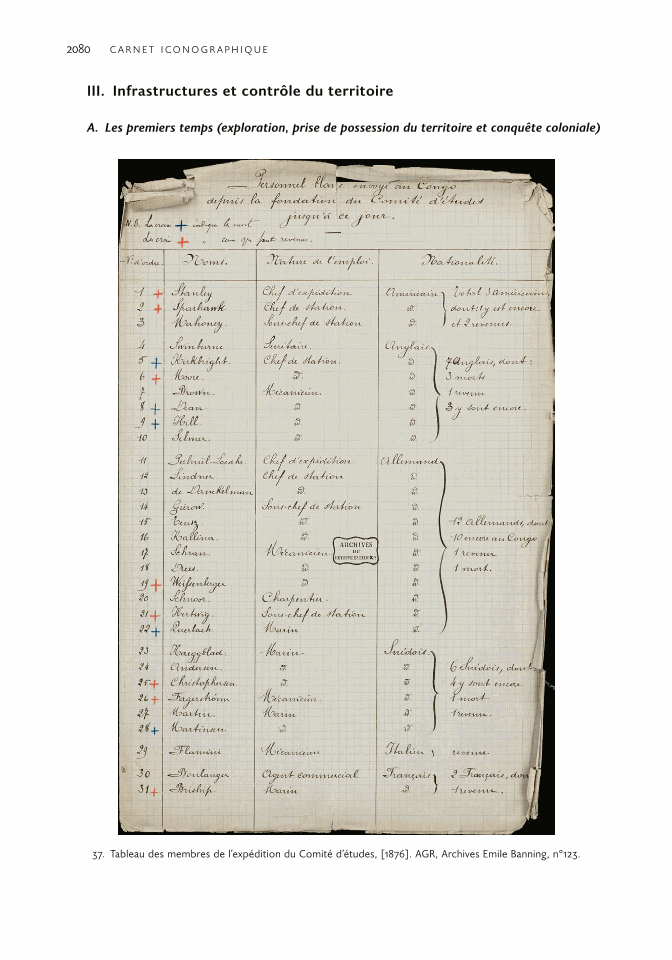 2080 CARNET ICONOGRAPHIQUE
III. Infrastructures et contrôle du territoire
A. Les premiers temps (exploration, prise de possession du territoire et conquête coloniale)
Personnel blanc envoyé au Congo
depuis la fondation du Comité d'études
jusqu'à ce jour.
N.B. La croix + indique le mort
La croix + " ceux qui sont revenus.
N. d'ordre. Noms. Nature de l'emploi. Nationalité.
1 + Stanley Chef d'expédition Américain Total 3 américains,
2 + Sparhawk Chef de station. d. dont 1 y est encore
3 Mahoney. Sous-chef de station d. et 2 revenus
4 Swinburne Secrétaire. Anglais
5 + Kirkbright. Chef de station. d 7 Anglais, dont :
6 + Moore. d. d 3 morts
7 Brown. Mécanicien. d 1 revenu
8 + Dean d. d 3 y sont encore.
9 + Hill. d. d
10 d. d.
11 Chef d'expédition Allemand
12 Lindner Chef de station d.
13 de Danckelman d. d.
14 Gürow. Sous-chef de station d.
15 Teusz d. d. 12 Allemands, dont
16 Kallina. d. d. 10 encore au Congo
17 Schran. Mécanicien d. 1 revenu
18 Drees. d. d. 1 mort.
ARCHIVES
DU
19 + Weissenberger d d.
20 Schnoor. Charpentier. d.
21 + Hertwig. Sous-chef de station d.
22 + Marin d.
23 Haeggblad. Marin Suédois.
24 Andersen. d. d. 6 Suédois, dont
25 + Christophersen d. d. 4 y sont encore
26 + Fagerström Mécanicien. d. 1 mort
27 Martin. Marin d. 1 revenu.
28 + Martinsen. d. d.
29 Flamini Mécanicien Italien revenu
30 Boulanger Agent commercial Français 2 Français, don
31 + Marin d. 1 revenu.
37. Tableau des membres de l'expédition du Comité d'études, [1876]. AGR, Archives Emile Banning, n°123.